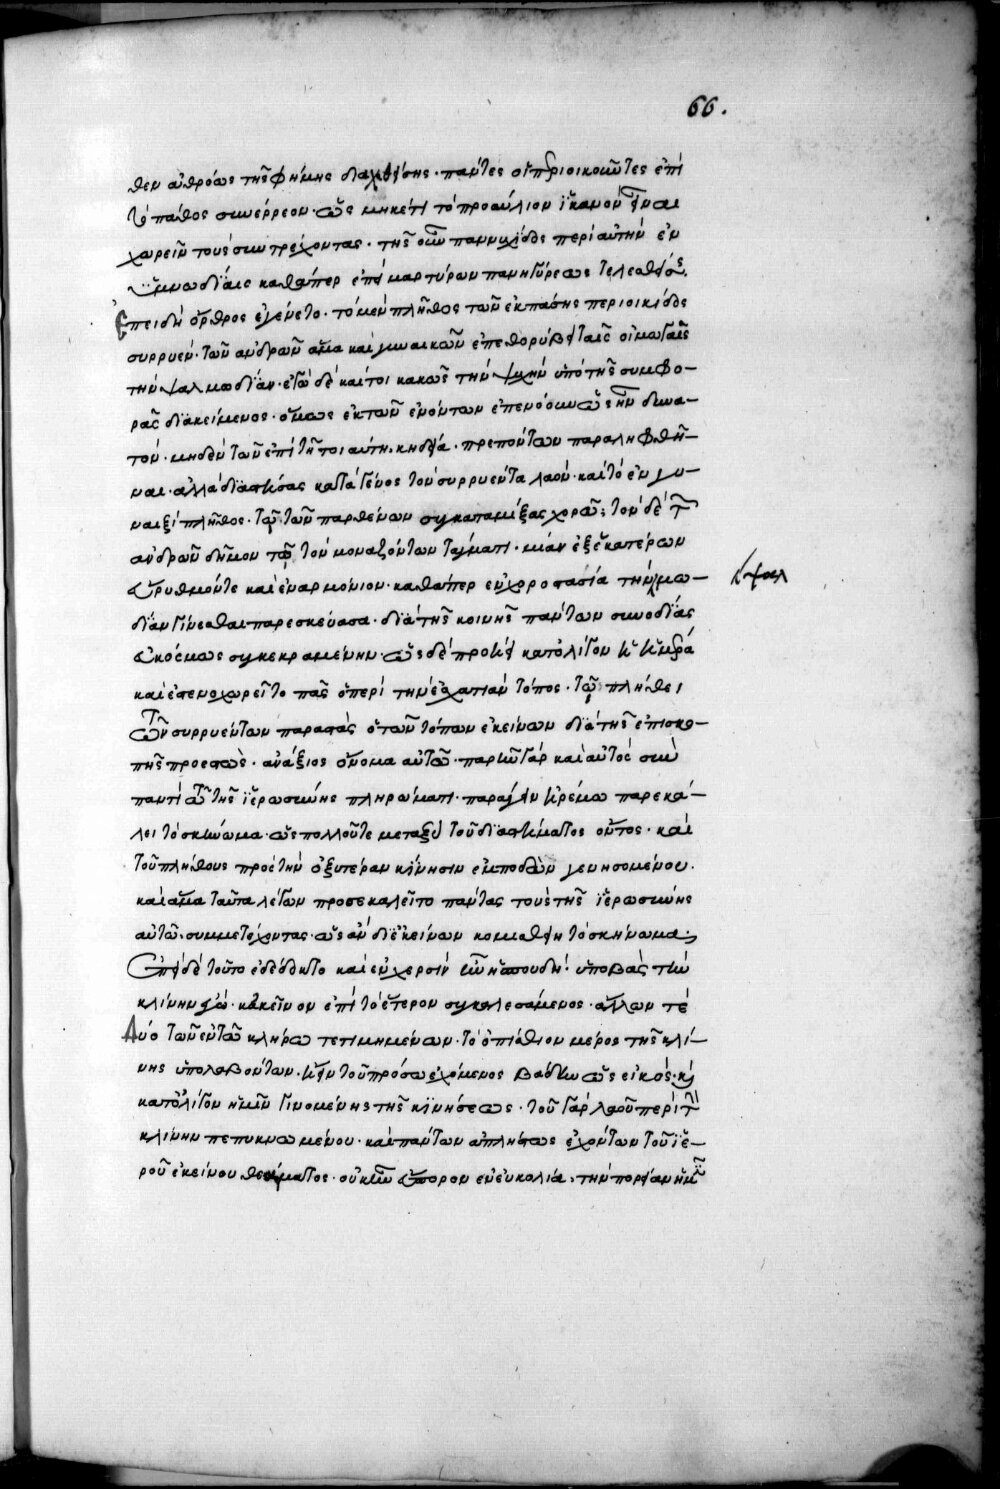 66.
θεν ἀθρόως τῆς φήμης διαχεθείσης· πάντες οἱ περιοικοῦντες ἐπὶ
τὸ πάθος συνέρρεον· ὡς μηκέτι τὸ προαύλιον ἱκανὸν εἶναι
χωρεῖν τοὺς συντρέχοντας· τῆς οὖν παννυχίδος περὶ αὐτὴν ἐν
ὑμνωδίαις καθάπερ ἐπὶ μαρτύρων πανηγύρεως τελεσθείσης,
Ἐπειδὴ ὄρθρος ἐγένετο· τὸ μὲν πλῆθος τῶν ἐκ πάσης περιοικίδος
συρρυὲν· τῶν ἀνδρῶν ἅμα καὶ γυναικῶν ἐπεθορύβει ταῖς οἰμωγαῖς
τὴν ψαλμωδίαν· ἐγὼ δὲ καίτοι κακῶς τὴν ψυχὴν ὑπὸ τῆς συμφο-
ρᾶς διακείμενος· ὅμως ἐκ τῶν ἐνόντων ἐπενόουν ὡς ἦν δυνα-
τὸν· μηδὲν τῶν ἐπὶ τῇ τοιαύτῃ κηδεία· πρεπόντων παραλειφθῆ-
ναι· ἀλλὰ διαστήσας κατὰ γένος τὸν συρρυέντα λαὸν· καὶ τὸ ἐν γυ-
ναιξὶ πλῆθος· τῷ τῶν παρθένων συγκαταμίξας χορῶ· τὸν δὲ τῶν
ἀνδρῶν δῆμον τῷ τῶν μοναζόντων τάγματι· μίαν ἐξ ἑκατέρων
εὔρυθμόν τε καὶ ἐναρμόνιον· καθάπερ ἐν χοροστασία τὴν μω-
ψαλ
δίαν γίνεσθαι παρεσκεύασα· διὰ τῆς κοινῆς πάντων συνωδίας
εὐκόσμως συγκεκραμένην· ὡς δὲ προήει κατ' ὀλίγον ἡ ἡμέρα
καὶ ἐστενοχωρεῖτο πᾶς ὁ περὶ τὴν ἐσχατιὰν τόπος· τῷ πλήθει
τῶν συρρυέντων παραστὰς ὁ τῶν τόπων ἐκείνων διὰ τῆς ἐπισκο-
πῆς προεστὼς· ἀράξιος ὄνομα αὐτῶ· παρῆν γὰρ καὶ αὐτὸς σὺν
παντὶ τῶ τῆς ἱερωσύνης πληρώματι· παράγειν ἠρέμω παρεκά-
λει τὸ σκήνωμα· ὡς πολλοῦ τε μεταξὺ τοῦ διαστήματος ὄντος· καὶ
τοῦ πλήθους πρὸς τὴν ὀξυτέραν κίνησιν ἐμποδὼν γενησομένου·
καὶ ἅμα ταῦτα λέγων προσεκαλεῖτο πάντας τοὺς τῆς ἱερωσύνης
αὐτῶ συμμετέχοντας· ὡς ἂν δι' ἐκείνων κομισθείη τὸ σκήνωμα·
Ἐπεὶ δὲ τοῦτο ἐδέδοκτο καὶ ἐν χερσὶν ἦν ἡ σπουδὴ· ὑποβὰς τὴν
κλίνην ἐγὼ· κἀκεῖνον ἐπὶ τὸ ἕτερον συγκαλεσάμενος· ἄλλων τε
δύο τῶν ἐν τῶ κλήρω τετιμημένων· τὸ ὀπίσθιον μέρος τῆς κλί-
νης ὑπολαβόντων. ἤειν τοῦ πρόσω ἐχόμενος βάδην ὡς εἰκὸς· καὶ
κατ' ὀλίγον ἡμῖν γινομένης τῆς κινήσεως· τοῦ γὰρ λαοῦ περὶ τὴν
κλίνην πεπυκνωμένου· καὶ πάντων ἀπλήστως ἐχόντων τοῦ ἱε-
ροῦ ἐκείνου θεάματος· οὐκ ἦν εὔπορον ἐν εὐκολία· τὴν πορείαν ἡμῖν